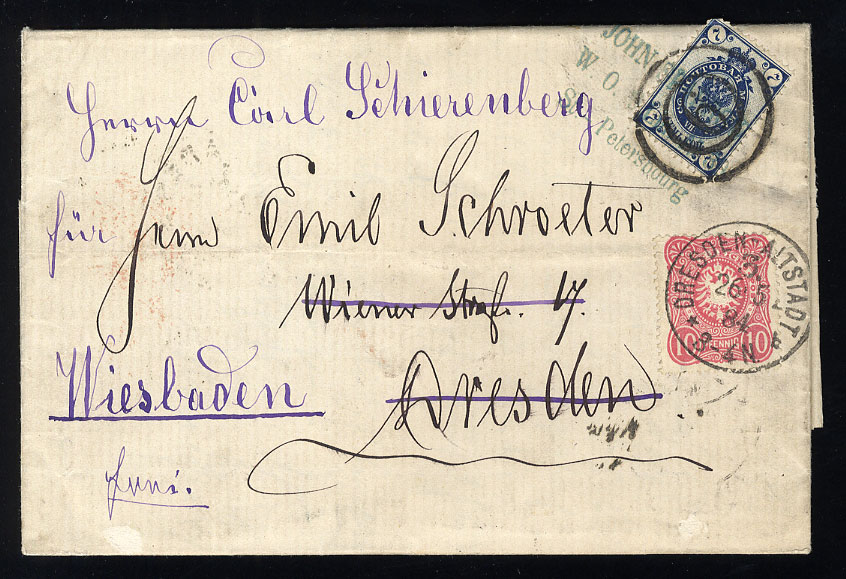 JOHN
W. O.
St. Petersbourg
7
7
7
7
ПОЧТОВАЯ
Herrn Carl Schierenberg
für Herrn Emil Schroeter
Wiener Straße. 17.
Wiesbaden
Dresden
DRESDEN ALTSTADT
26 5
84
3-4 N.
10 PFENNIG 10